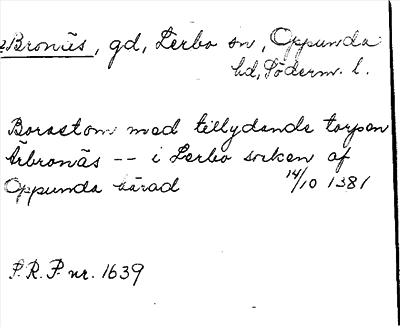 Bronäs, gd, Lerbo sn, Oppunda
hd, Söderm. l.
Borastom med tillydande torpen
Årbronäs -- i Lerbo socken af
Oppunda härad 14/10 1381
S.R.P. nr. 1639